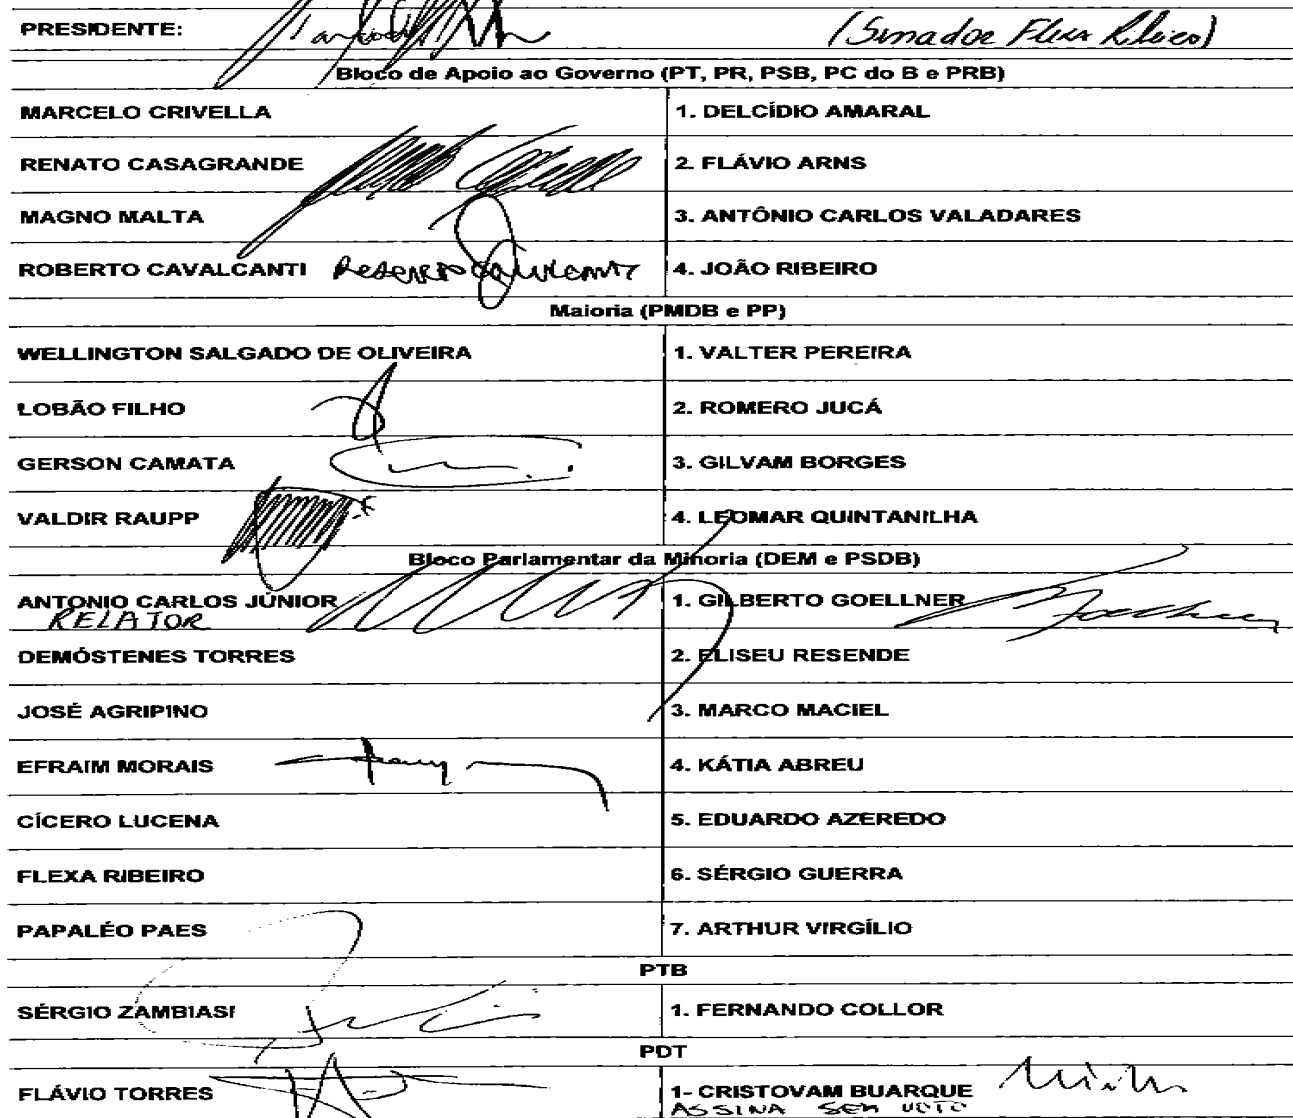 PRESIDENTE: (Senador Flexa Ribeiro)
Bloco de Apoio ao Governo (PT, PR, PSB, PC do B e PRB)
MARCELO CRIVELLA 1. DELCÍDIO AMARAL
RENATO CASAGRANDE 2. FLÁVIO ARNS
MAGNO MALTA 3. ANTÔNIO CARLOS VALADARES
ROBERTO CAVALCANTI 4. JOÃO RIBEIRO
Maioria (PMDB e PP)
WELLINGTON SALGADO DE OLIVEIRA 1. VALTER PEREIRA
LOBÃO FILHO 2. ROMERO JUCÁ
GERSON CAMATA 3. GILVAM BORGES
VALDIR RAUPP 4. LEOMAR QUINTANILHA
Bloco Parlamentar da Minoria (DEM e PSDB)
ANTONIO CARLOS JÚNIOR 1. GILBERTO GOELLNER
RELATOR
DEMÓSTENES TORRES 2. ELISEU RESENDE
JOSÉ AGRIPINO 3. MARCO MACIEL
EFRAIM MORAIS 4. KÁTIA ABREU
CÍCERO LUCENA 5. EDUARDO AZEREDO
FLEXA RIBEIRO 6. SÉRGIO GUERRA
PAPALÉO PAES 7. ARTHUR VIRGÍLIO
PTB
SÉRGIO ZAMBIASI 1. FERNANDO COLLOR
PDT
FLÁVIO TORRES 1- CRISTOVAM BUARQUE
ASSINA SEM VOTO